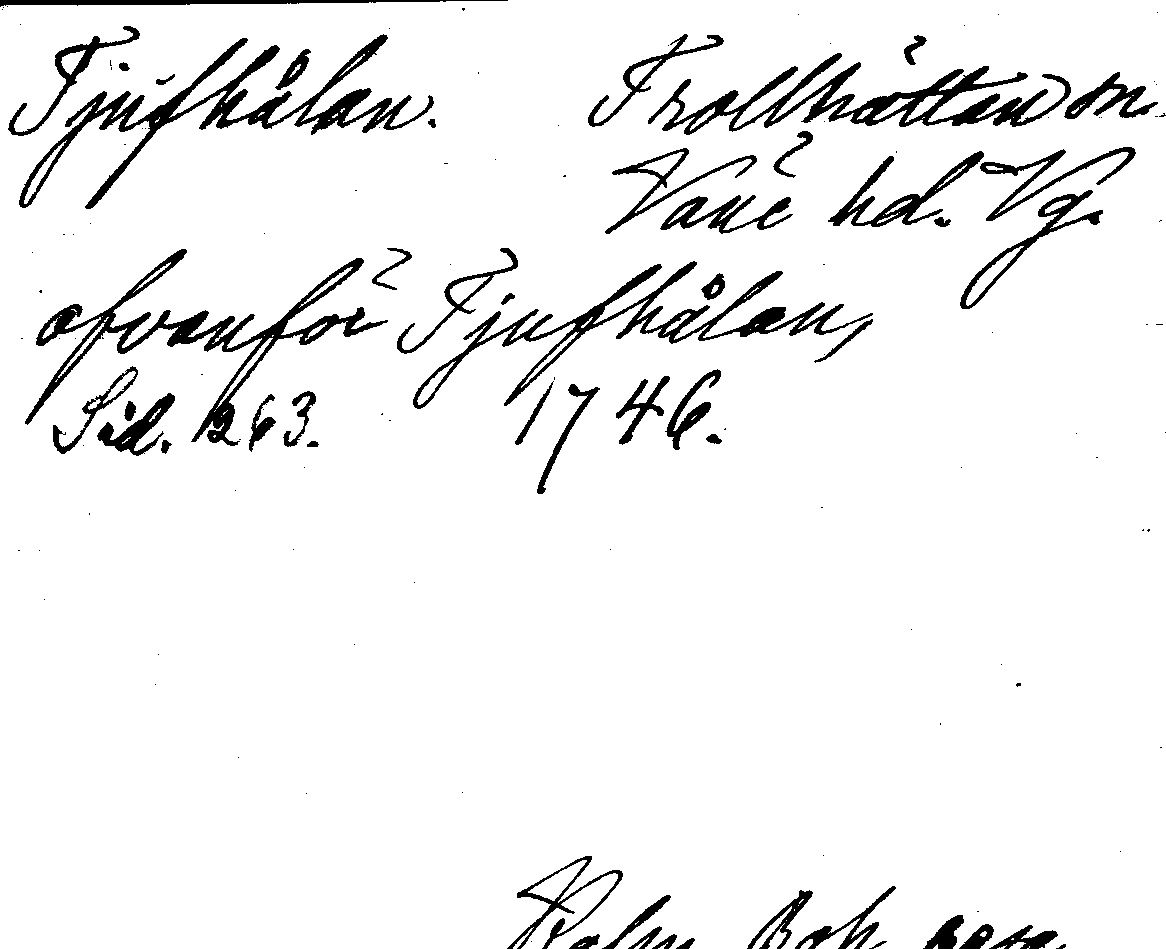 Tjufhålan. Trollhättan sn.
Väne hd. Vg.
ofvanför Tjufhålan,
Sid. 263. 1746.
Kalm Boh. resa